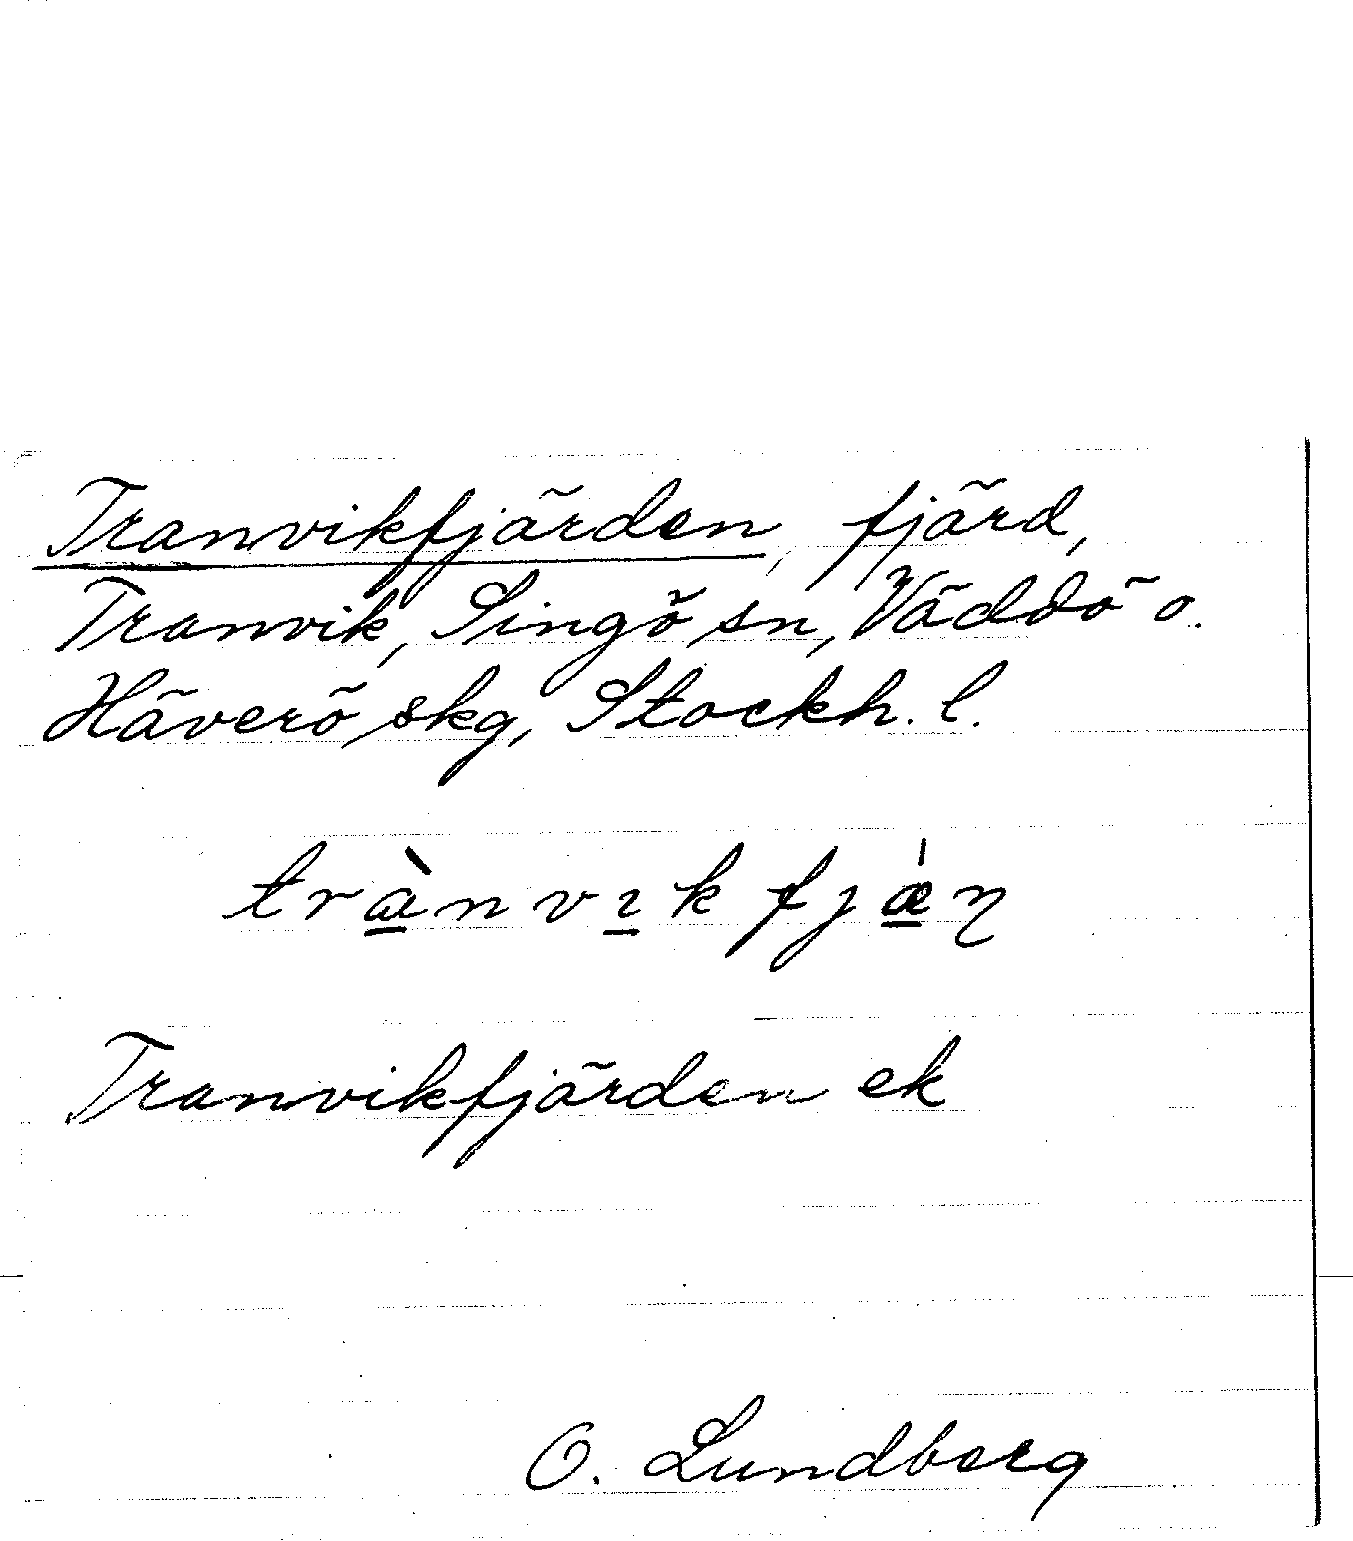 Tranvikfjärden, fjärd,
Tranvik, Singö sn, Väddö o.
Häverö skg, Stockh. l.
trànvıkfjǽŋ
Tranvikfjärden ek
O. Lundberg